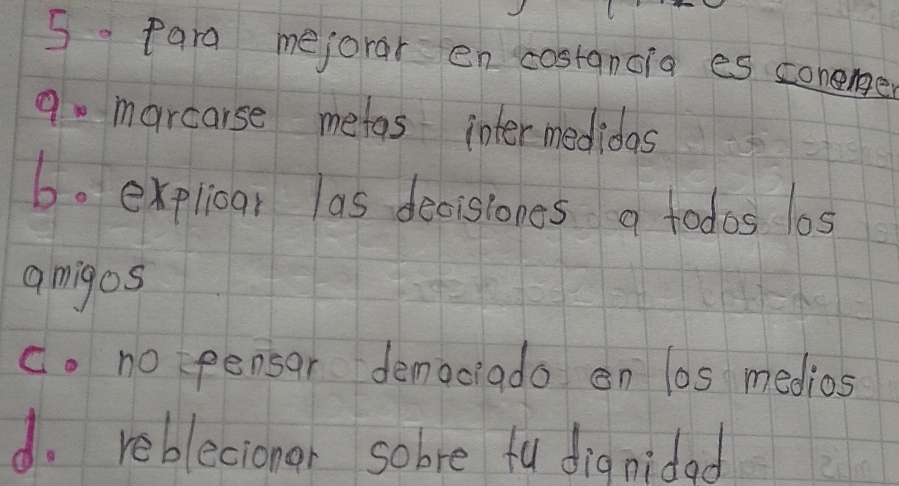 5. Para mejorar en costancia es
a. marcarse metas intermedidas
b. explicar las decisiones a todos los
amigos
c. no pensar demaciado en los medios
d. reblecionar sobre tu dignidad